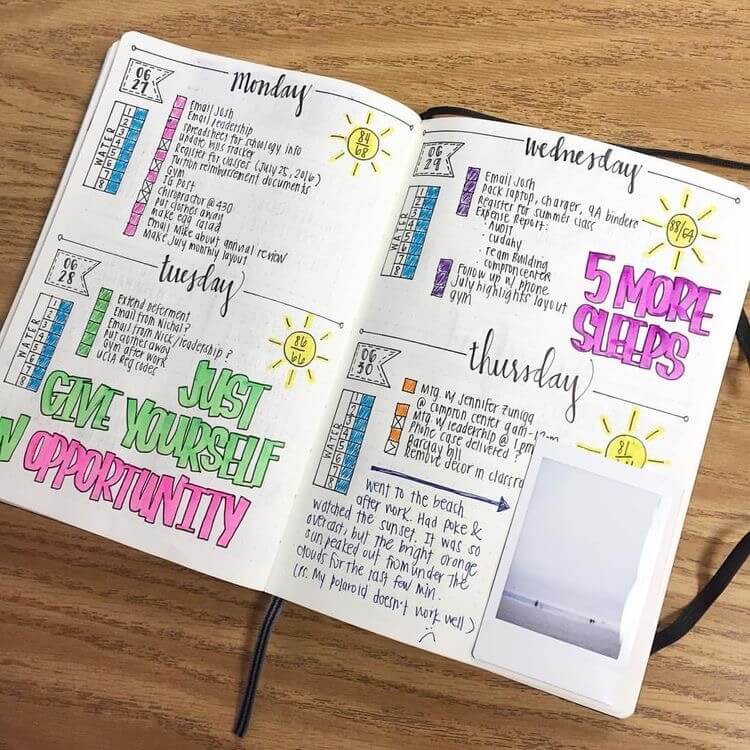 Monday
06
27
84
68
WATER
1
2
3
4
5
6
7
8
Email Josh
Email leadership
spreadsheet for schology info
update hrs tracker
Register for classes (July 25, 2016)
Tuition reimbursement documents
Gym
IG post
chiropractor @ 430
put clothes away
make egg salad
Email Mike about annual review
Make July monthly layout
Tuesday
06
28
86
66
WATER
1
2
3
4
5
6
7
8
Extend deferment
Email from Nichal?
Email from Nick/leadership?
Put clothes away
Gym after work
UCLA Reg codes
JUST
GIVE YOURSELF
OPPORTUNITY
Wednesday
06
29
88/64
WATER
1
2
3
4
5
6
7
8
Email Josh
Pack laptop, charger, 9A binders
Register for summer class
Expense Report:
· Audit
· cudahy
· Team Building
· compton center
Follow up w/ phone
July highlights layout
gym
5 MORE
SLEEPS
Thursday
06
30
81
WATER
1
2
3
4
5
6
7
8
Mtg. w/ Jennifer Zuniga
@ compton center 9am-12pm
Mtg w/ leadership @ 1pm
Phone case delivered?
Barclay bill
Remove decor in classro
went to the beach
after work. Had poke &
watched the sunset. It was so
overcast, but the bright orange
sun peaked out from under the
clouds for the last few min.
(PS. My polaroid doesn't work well)